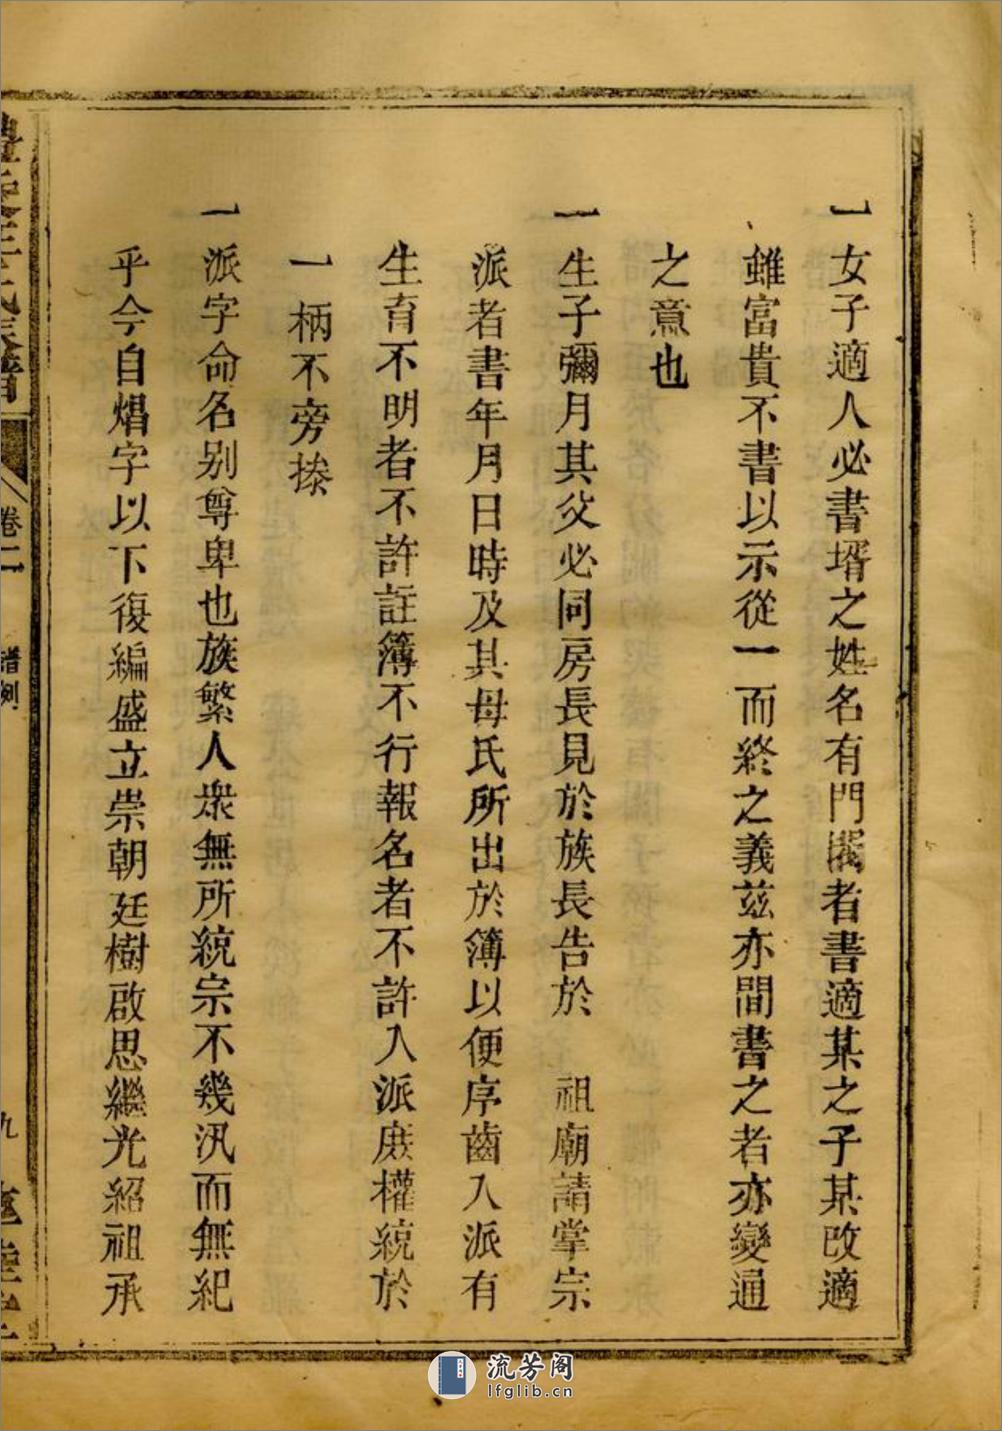 一女子適人必書壻之姓名有門閥者書適某之子某改適
雖富貴不書以示從一而終之義茲亦間書之者亦變通
之意也
一生子彌月其父必同房長見於族長告於 祖廟請掌宗
派者書年月日時及其母氏所出於簿以便序齒入派有
生育不明者不許註簿不行報名者不許入派庶權統於
一柄不旁搽
一派字命名別尊卑也族繁人衆無所統宗不幾汎而無紀
乎今自焻字以下復編盛立崇朝廷樹啟思繼光紹祖承
氏族譜
卷二
譜例
九
流芳阁
lfglib.cn